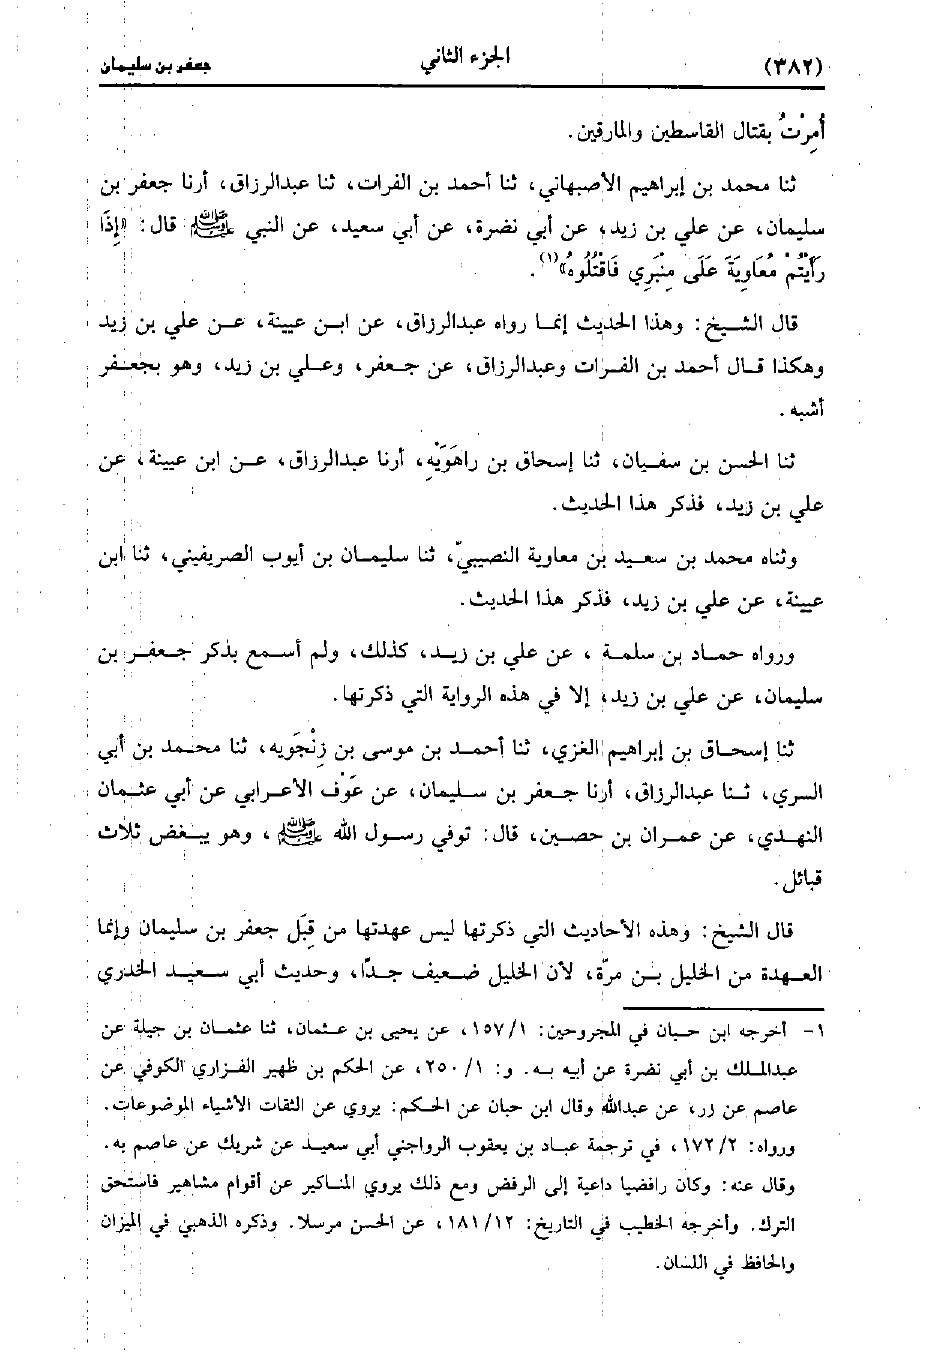 (٣٨٢) الجزء الثاني جعفر بن سليمان
أُمِرْتُ بقتال القاسطين والمارقين.
ثنا محمد بن إبراهيم الأصبهاني، ثنا أحمد بن الفرات، ثنا عبدالرزاق، أرنا جعفر بن
سليمان، عن علي بن زيد، عن أبي نضرة، عن أبي سعيد، عن النبي ﷺ قال: «إِذَا
رَأَيْتُمْ مُعَاوِيَةَ عَلَى مِنْبَرِي فَاقْتُلُوهُ»(١).
قال الشيخ: وهذا الحديث إنما رواه عبدالرزاق، عن ابن عيينة، عن علي بن زيد
وهكذا قال أحمد بن الفرات وعبدالرزاق، عن جعفر، وعلي بن زيد، وهو بجعفر
أشبه.
ثنا الحسن بن سفيان، ثنا إسحاق بن راهَوَيْهِ، أرنا عبدالرزاق، عن ابن عيينة، عن
علي بن زيد، فذكر هذا الحديث.
وثناه محمد بن سعيد بن معاوية النصيبيّ، ثنا سليمان بن أيوب الصريفيني، ثنا ابن
عيينة، عن علي بن زيد، فذكر هذا الحديث.
ورواه حماد بن سلمة ، عن علي بن زيد، كذلك، ولم أسمع بذكر جعفر بن
سليمان، عن علي بن زيد، إلا في هذه الرواية التي ذكرتها.
ثنا إسحاق بن إبراهيم الغزي، ثنا أحمد بن موسى بن زِنْجَويه، ثنا محمد بن أبي
السري، ثنا عبدالرزاق، أرنا جعفر بن سليمان، عن عَوْف الأعرابي عن أبي عثمان
النهدي، عن عمران بن حصين، قال: توفي رسول الله ﷺ ، وهو يبغض ثلاث
قبائل.
قال الشيخ: وهذه الأحاديث التي ذكرتها ليس عهدتها من قِبَل جعفر بن سليمان وإنما
العهدة من الخليل بن مرّة، لأن الخليل ضعيف جدًا، وحديث أبي سعيد الخدري
١- أخرجه ابن حبان في المجروحين: ١/ ١٥٧، عن يحيى بن عثمان، ثنا عثمان بن جبلة عن
عبدالملك بن أبي نضرة عن أبيه به. و: ١/ ٢٥٠، عن الحكم بن ظهير الفزاري الكوفي عن
عاصم عن زر، عن عبدالله وقال ابن حبان عن الحكم: يروي عن الثقات الأشياء الموضوعات.
ورواه: ٢/ ١٧٢، في ترجمة عباد بن يعقوب الرواجني أبي سعيد عن شريك عن عاصم به.
وقال عنه: وكان رافضيا داعية إلى الرفض ومع ذلك يروي المناكير عن أقوام مشاهير فاستحق
الترك. وأخرجه الخطيب في التاريخ: ١٢/ ١٨١، عن الحسن مرسلا. وذكره الذهبي في الميزان
والحافظ في اللسان.